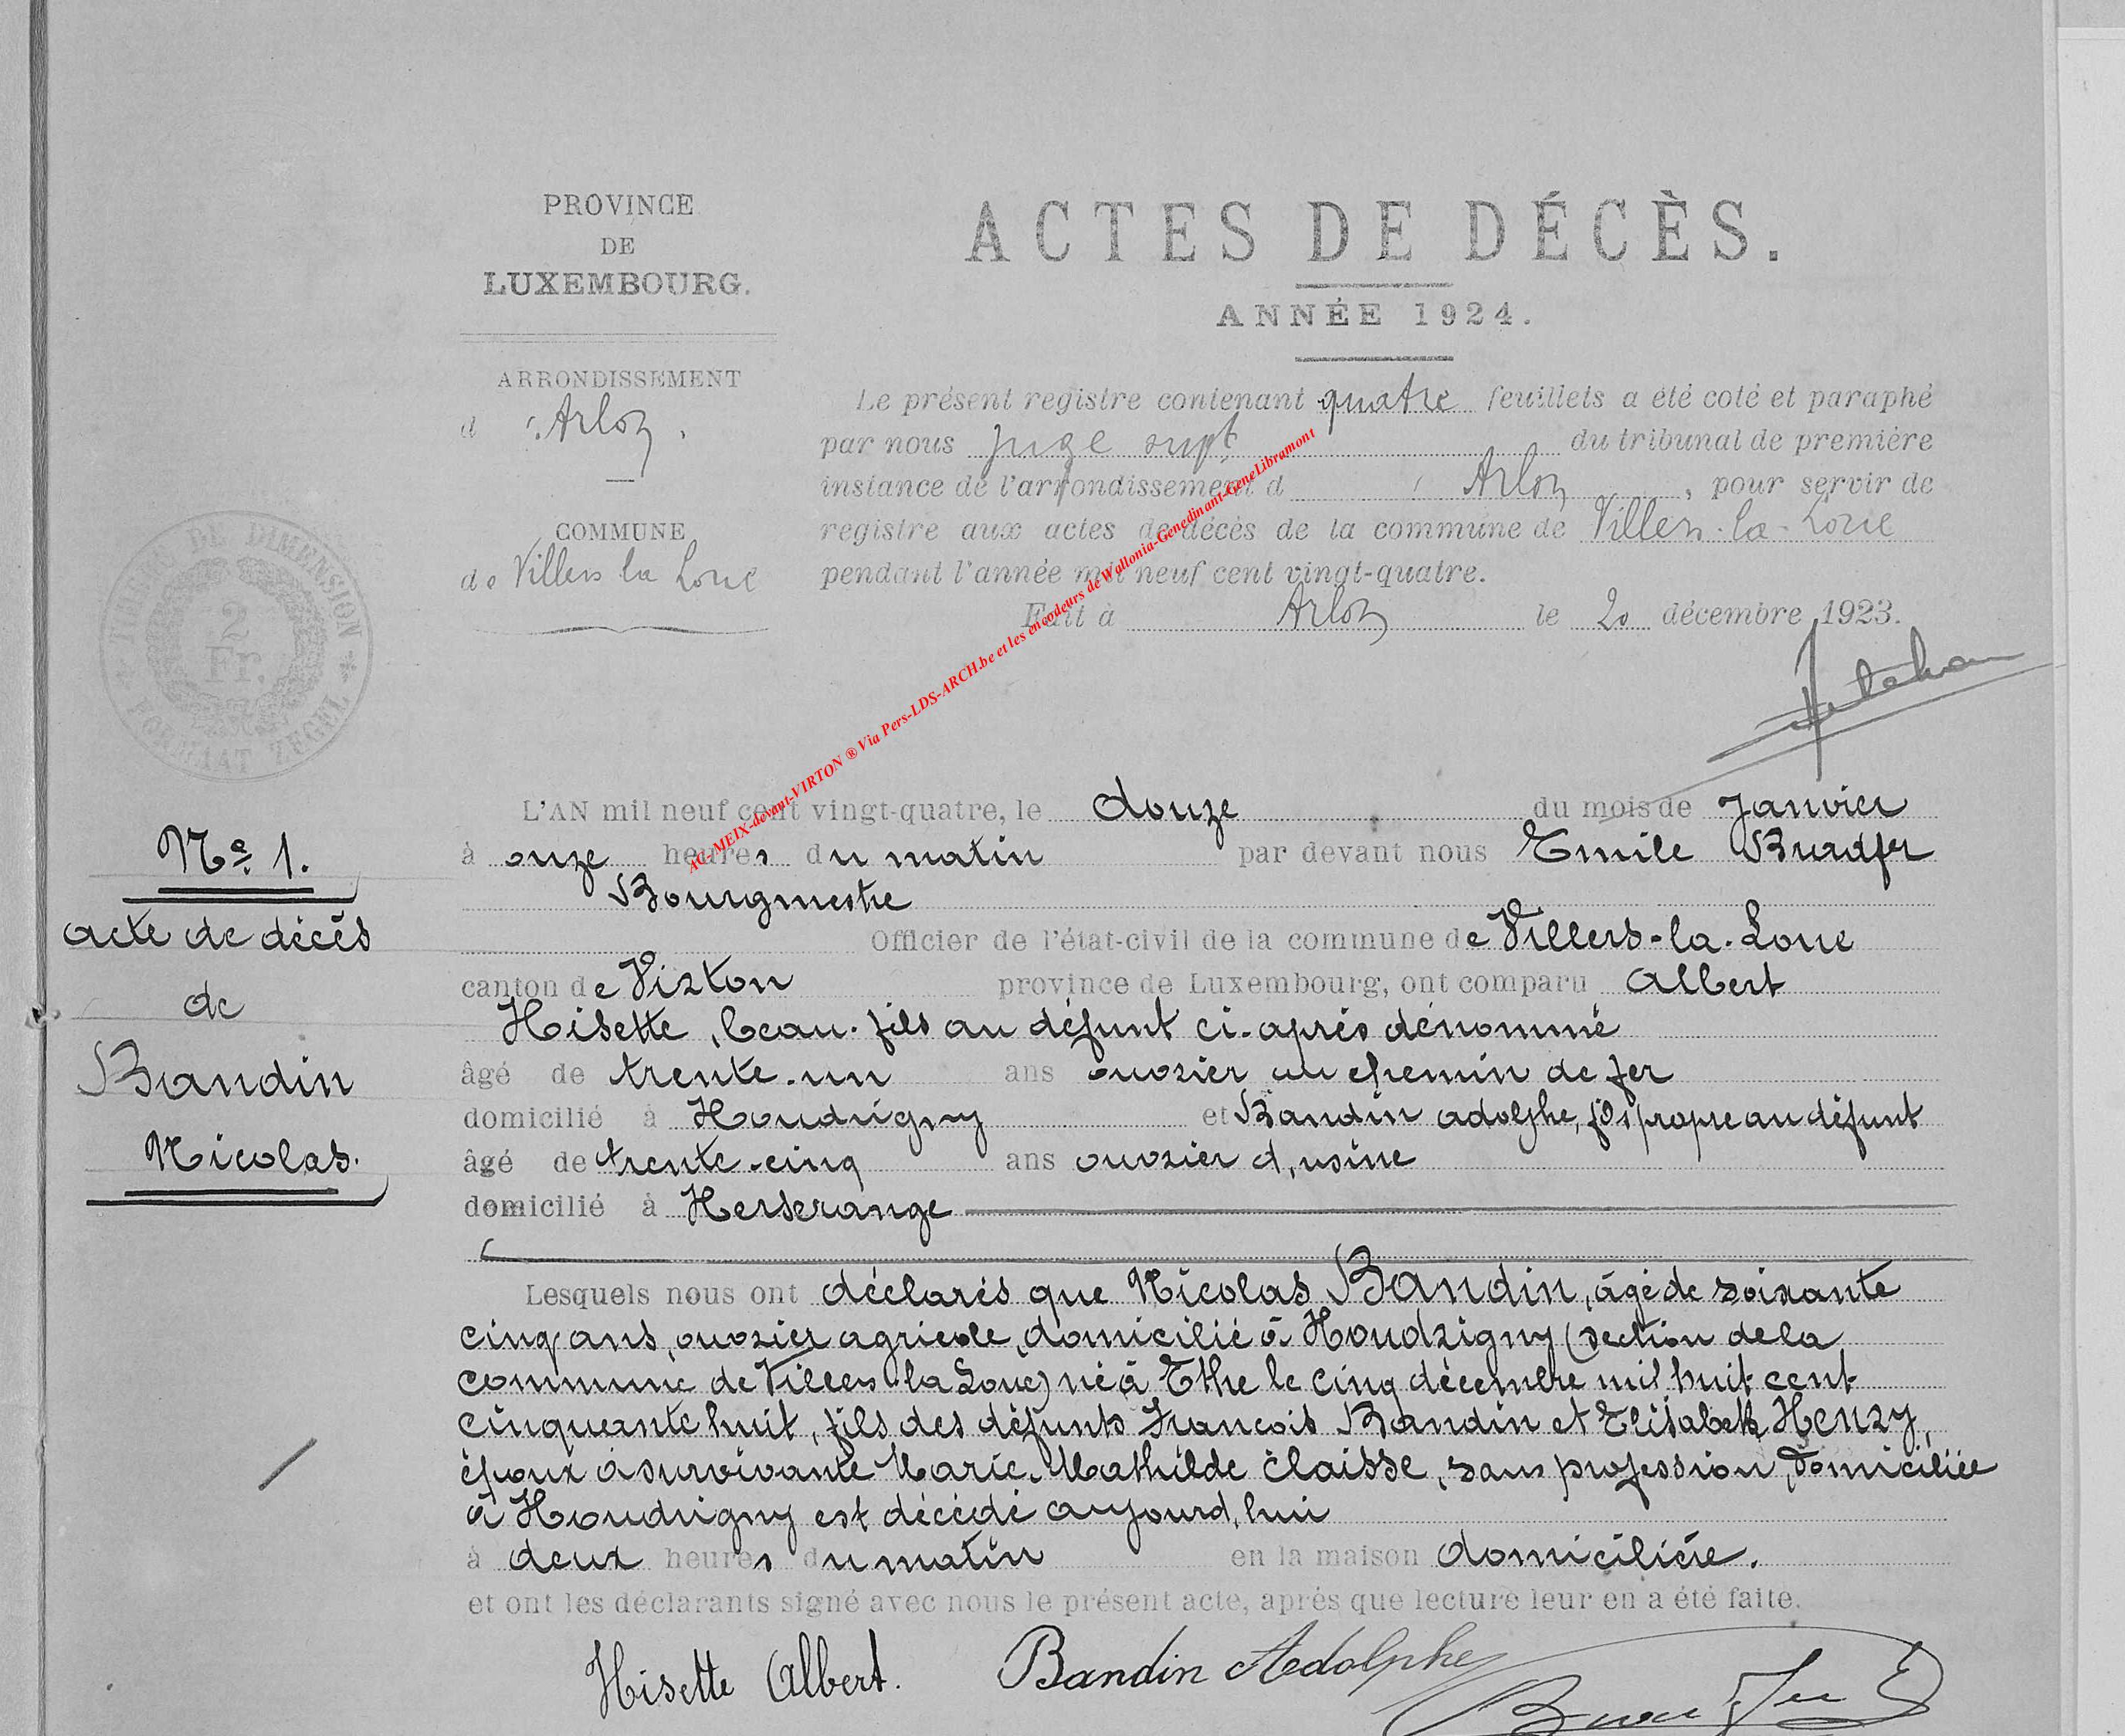 PROVINCE
DE
LUXEMBOURG.
ARRONDISSEMENT
d'Arlon.
COMMUNE
de Villers la Loue
ACTES DE DÉCÈS.
ANNÉE 1924.
Le présent registre contenant quatre feuillets a été coté et paraphé
par nous juge supt du tribunal de première
instance de l'arrondissement d'Arlon, pour servir de
registre aux actes de décès de la commune de Villers-la-Loue
pendant l'année mil neuf cent vingt-quatre.
Fait à Arlon le 20 décembre 1923.
TIMBRE DE DIMENSION * FORMAAT ZEGEL *
2
Fr.
AC-MEIX-devant-VIRTON ® Via Pers-LDS-ARCH.be et les encodeurs de Wallonia-Genedinant-GeneLibramont
No 1.
acte de décès
de
Bandin
Nicolas.
L'AN mil neuf cent vingt-quatre, le douze du mois de Janvier
à onze heures du matin par devant nous Emile
Bourgmestre
Officier de l'état-civil de la commune de Villers-la-Loue
canton de Virton province de Luxembourg, ont comparu Albert
Hisette, beau-fils au défunt ci-après dénommé
âgé de trente-un ans ouvrier au chemin de fer
domicilié à Houdrigny et Bandin adolphe, fils propre au défunt
âgé de trente-cinq ans ouvrier d'usine
domicilié à Herserange
Lesquels nous ont déclarés que Nicolas Bandin, âgé de soixante
cinq ans, ouvrier agricole, domicilié à Houdrigny (section de la
commune de Villers-la Loue) né à Ethe le cinq décembre mil huit cent
cinquante huit, fils des défunts François Bandin et Elisabeth Henry,
époux à survivante Marie-Mathilde Claisse, sans profession, domiciliée
à Houdrigny est décédé aujourd'hui
à deux heures du matin en la maison domiciliére.
et ont les déclarants signé avec nous le présent acte, après que lecture leur en a été faite.
Hisette Albert. Bandin Adolphe